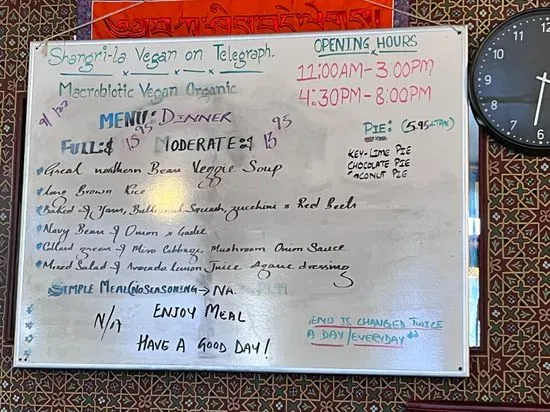 Shangri-la Vegan on Telegraph.
Macrobiotic Vegan Organic
OPENING HOURS
11:00AM-3:00PM
4:30PM-8:00PM
MENU: DINNER
FULL:$ 15 95 MODERATE:$ 13 95
Great northern Bean Veggie Soup
Long Brown Rice
Baked Yam, Butternut Squash, zucchini & Red Beets
Navy Bean & Onion & Garlic
Collard green & Miso Cabbage, Mushroom Onion Sauce
Mixed Salad & Avocado Lemon Juice Agave dressing
SIMPLE MEAL(NOSEASONING)→ NA.
N/A ENJOY MEAL
HAVE A GOOD DAY!
PIE: (5.95+TAX)
KEY-LIME PIE
CHOCOLATE PIE
COCONUT PIE
MENU IS CHANGED TWICE
A DAY/EVERYDAY
11 12
10 1
9
8
7 6